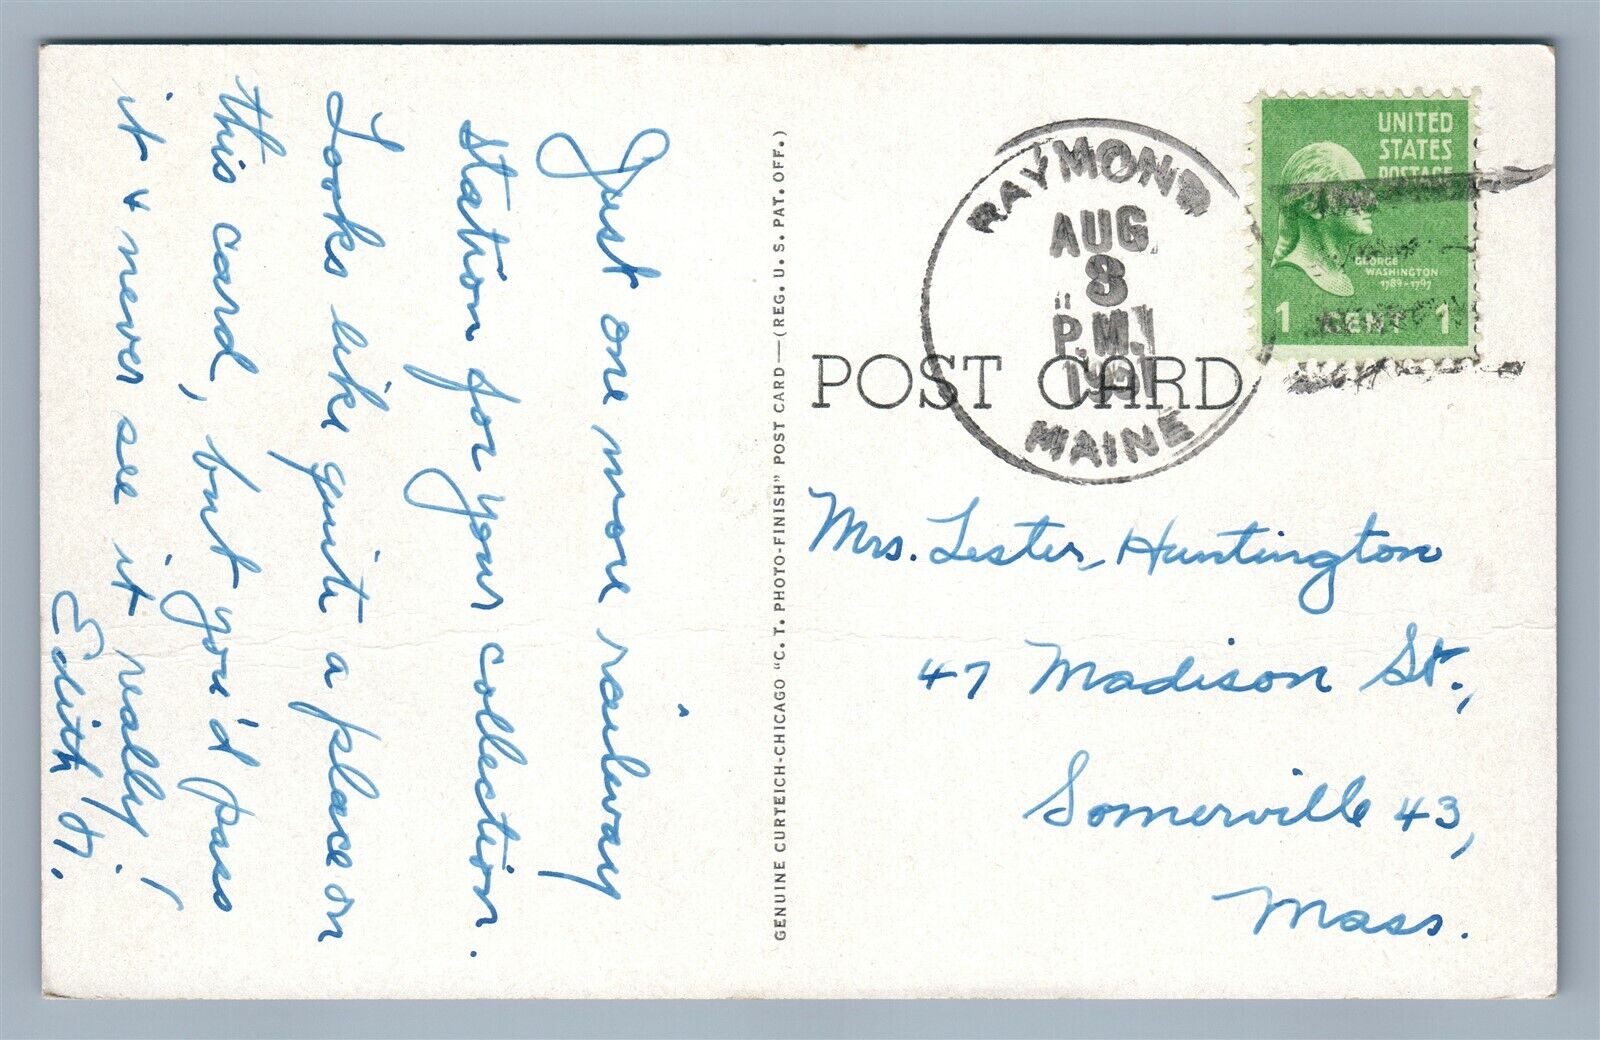 Just one more railway
station for your collection.
Looks like quite a place on
this card, but you'd pass
it & never see it really!
Edith H.
GENUINE CURTEICH-CHICAGO "C. T. PHOTO-FINISH" POST CARD—(REG. U. S. PAT. OFF.)
RAYMOND
AUG
8
P.M.
1951
MAINE
UNITED
STATES
POSTAGE
GEORGE
WASHINGTON
1789-1797
1 CENT 1
POST CARD
Mrs. Lester Huntington
47 Madison St.,
Somerville 43,
Mass.